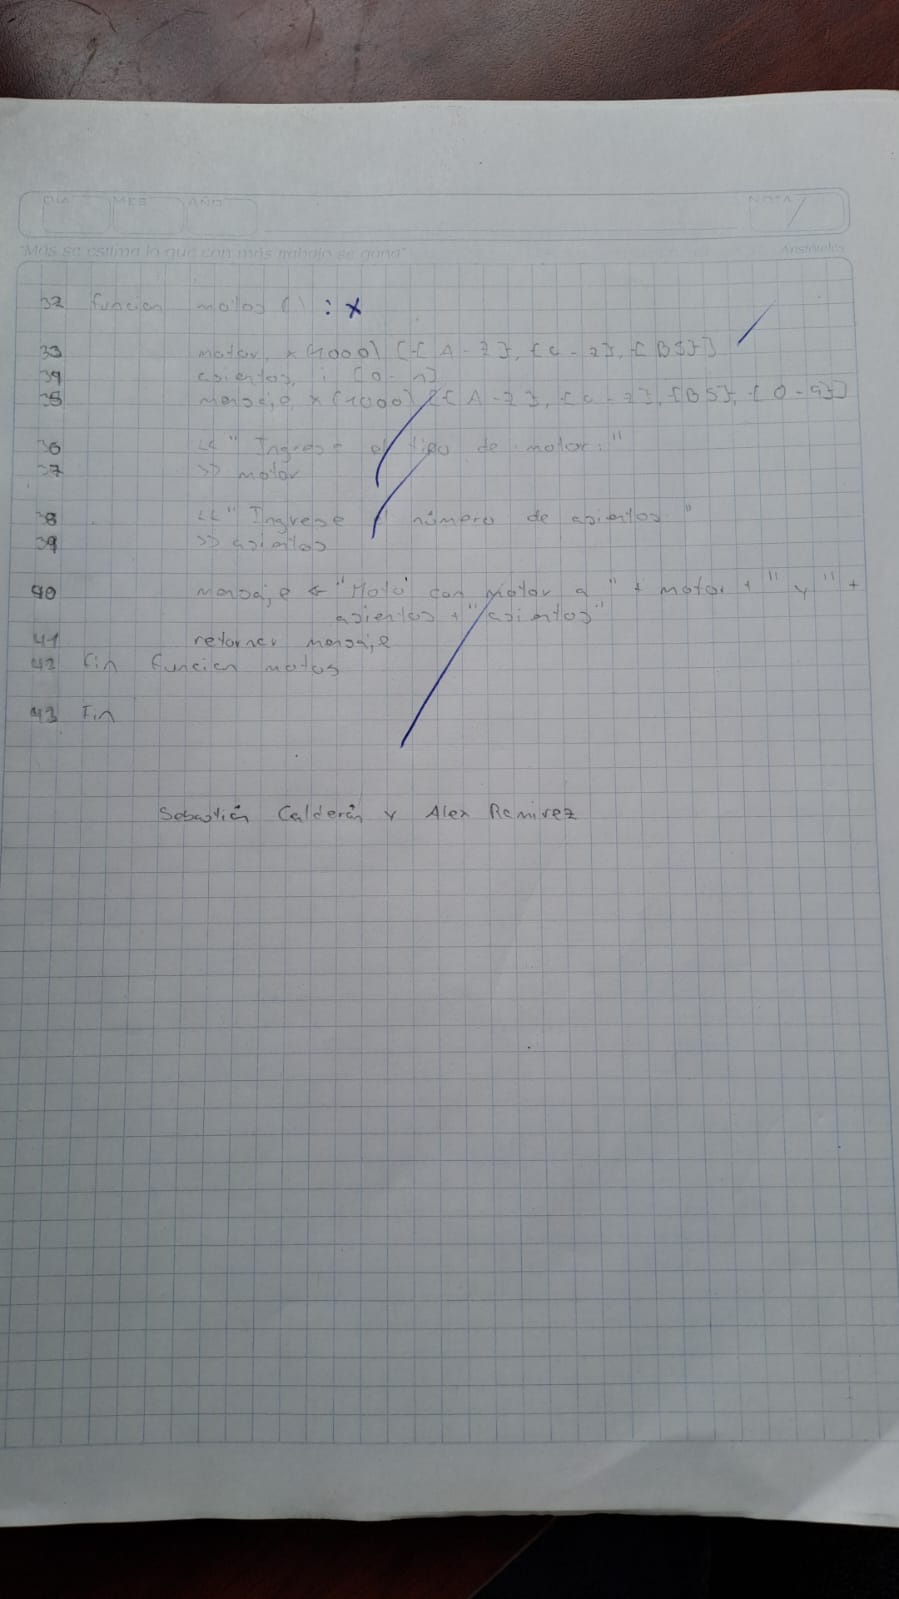 DÍA MES AÑO NOTA
"Más se estima lo que con más trabajo se gana" Aristóteles
32 funcion motos () : x
33 motor, x (1000) [{A-Z}, {a-z}, {BS}]
34 asientos, i [0-n]
35 mensaje, x (1000) [{A-Z}, {a-z}, {BS}, {0-9}]
36 << "Ingrese el tipo de motor:"
37 >> motor
38 << "Ingrese el número de asientos "
39 >> asientos
40 mensaje ← "Moto con motor a " + motor + " y " +
asientos + "asientos"
41 retornar mensaje
42 Fin funcion motos
43 Fin
Sebastián Calderón y Alex Ramirez